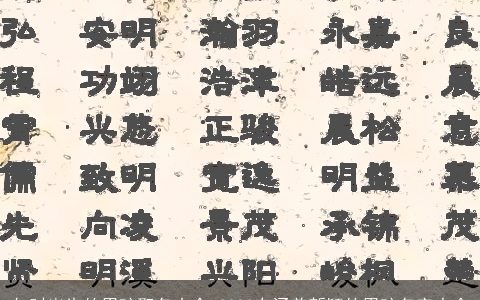 弘 安明 瀚羽 永嘉 良
程 功翊 浩津 皓远 晨
霄 兴 正骏 晨松 意
儒 致明 宽逸 明益 慕
先 向凌 景茂 承锦 茂
贤 明溪 兴阳 峻枫 楚